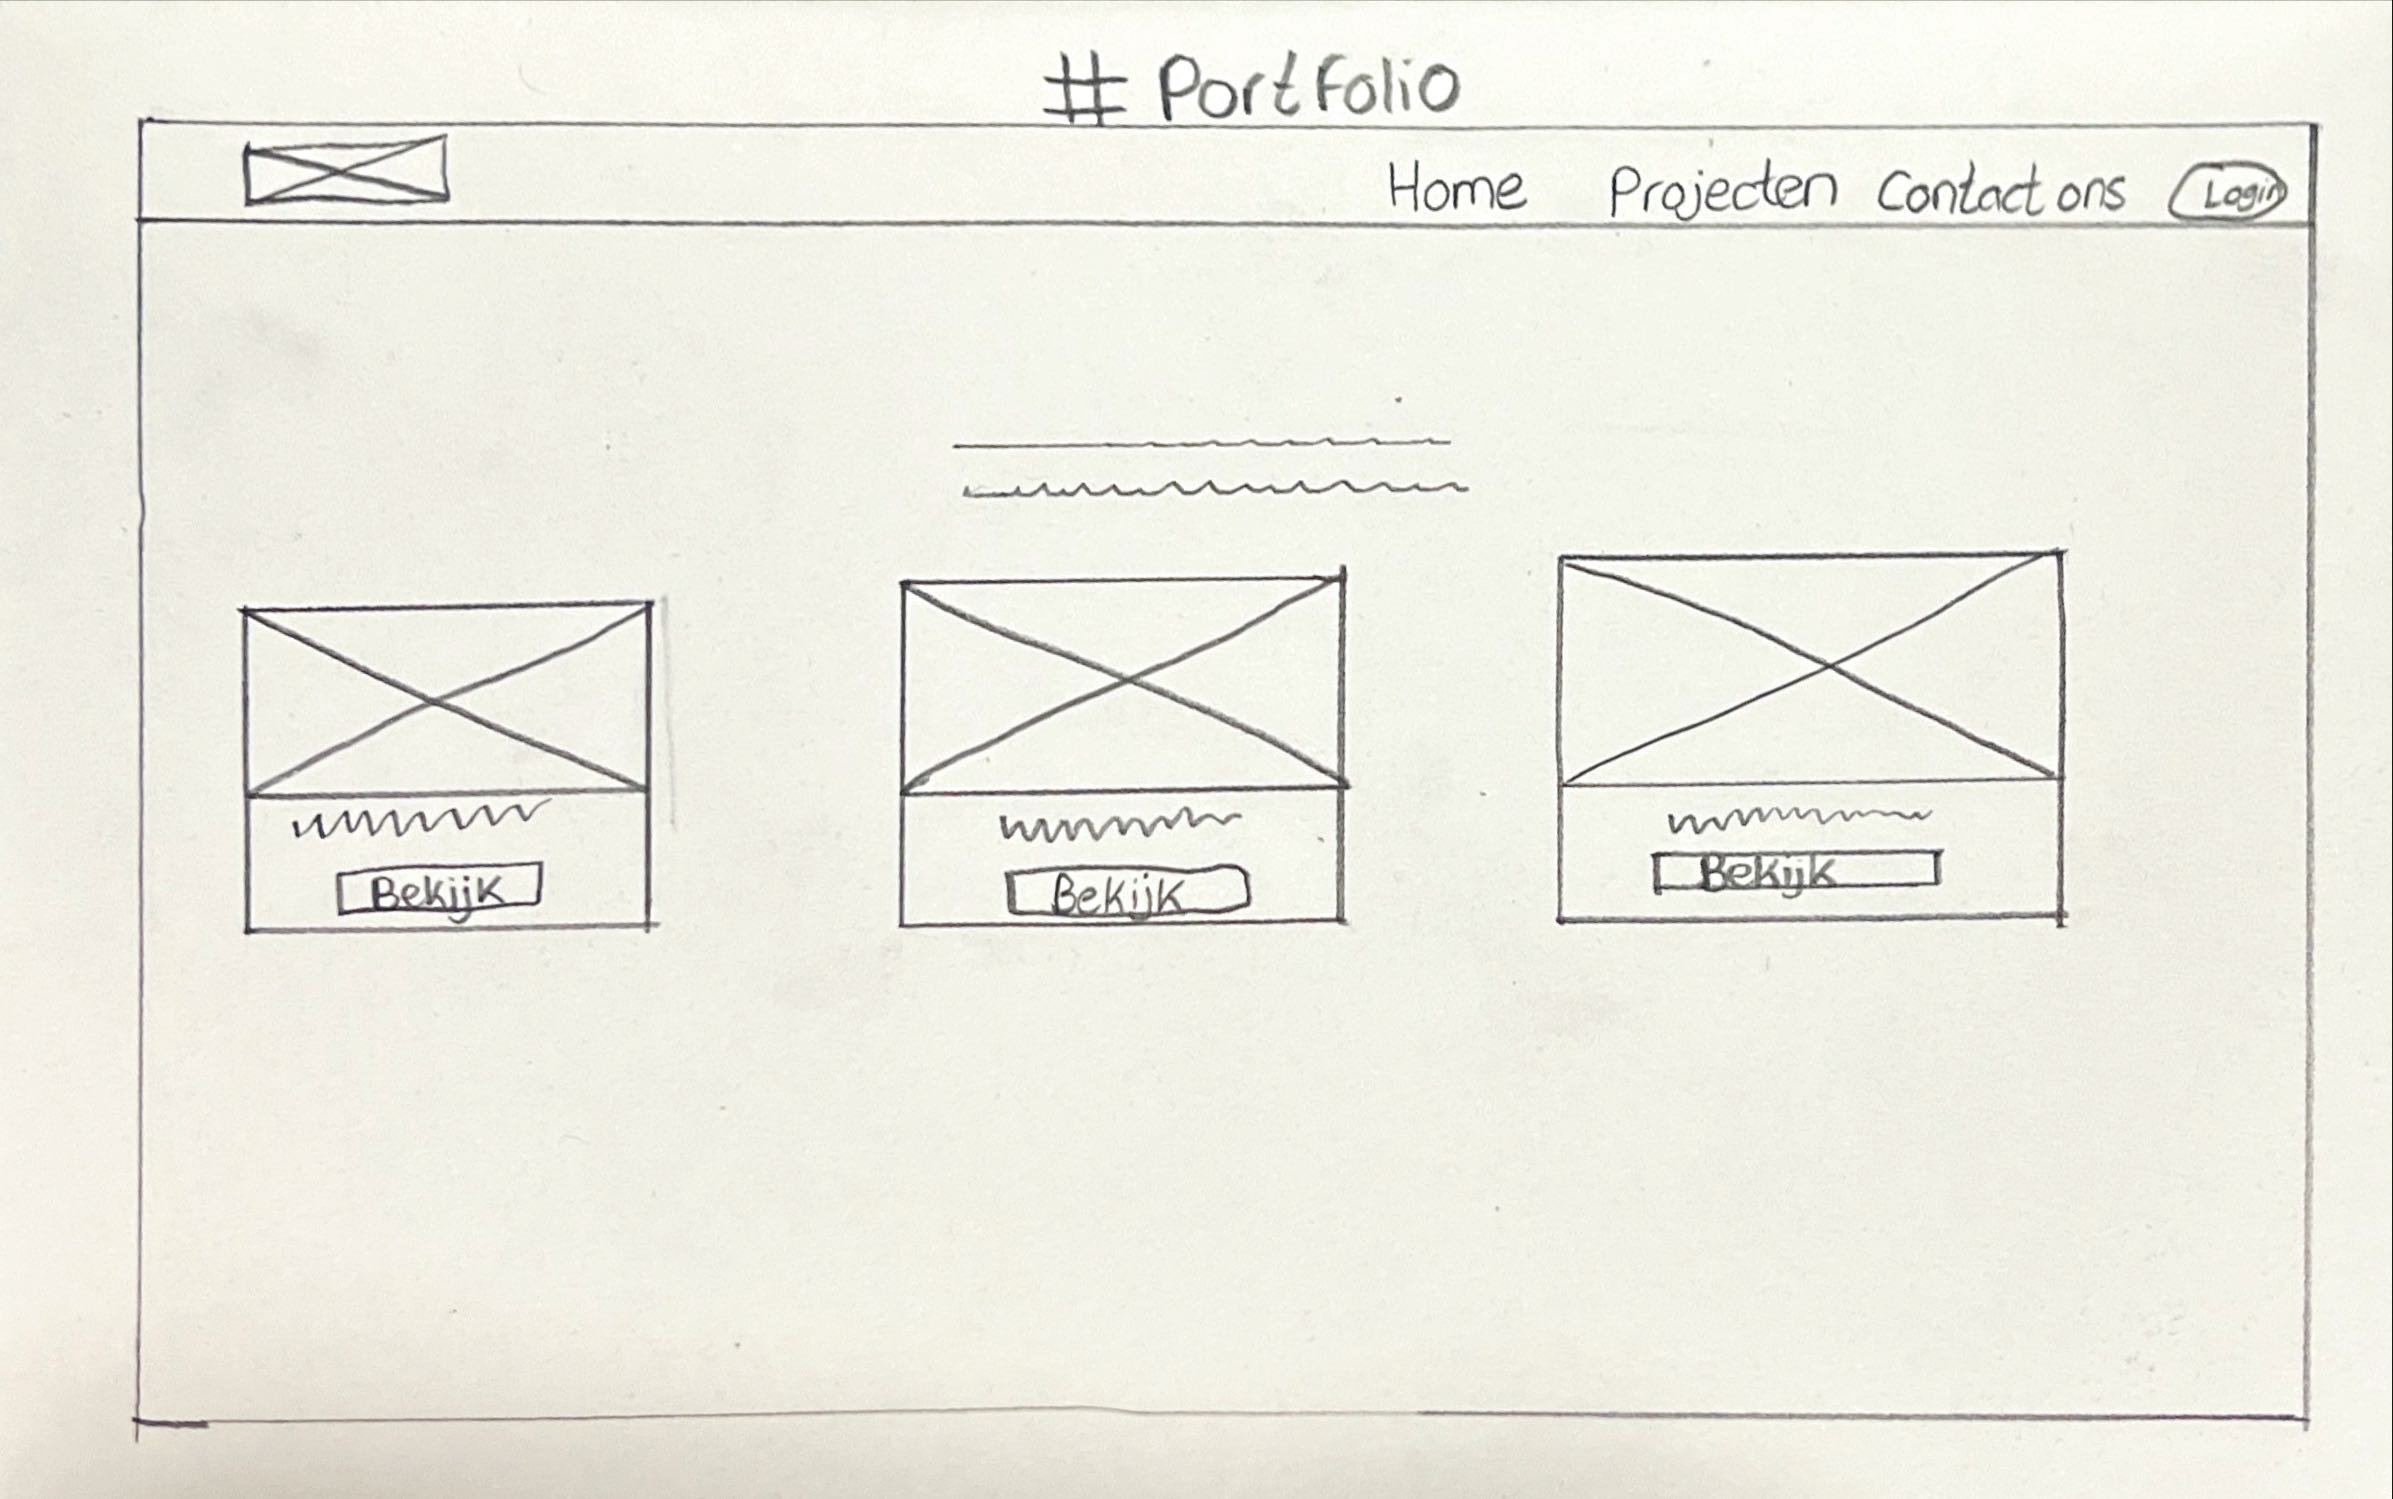 # Portfolio
Home Projecten Contact ons Login
Bekijk Bekijk Bekijk